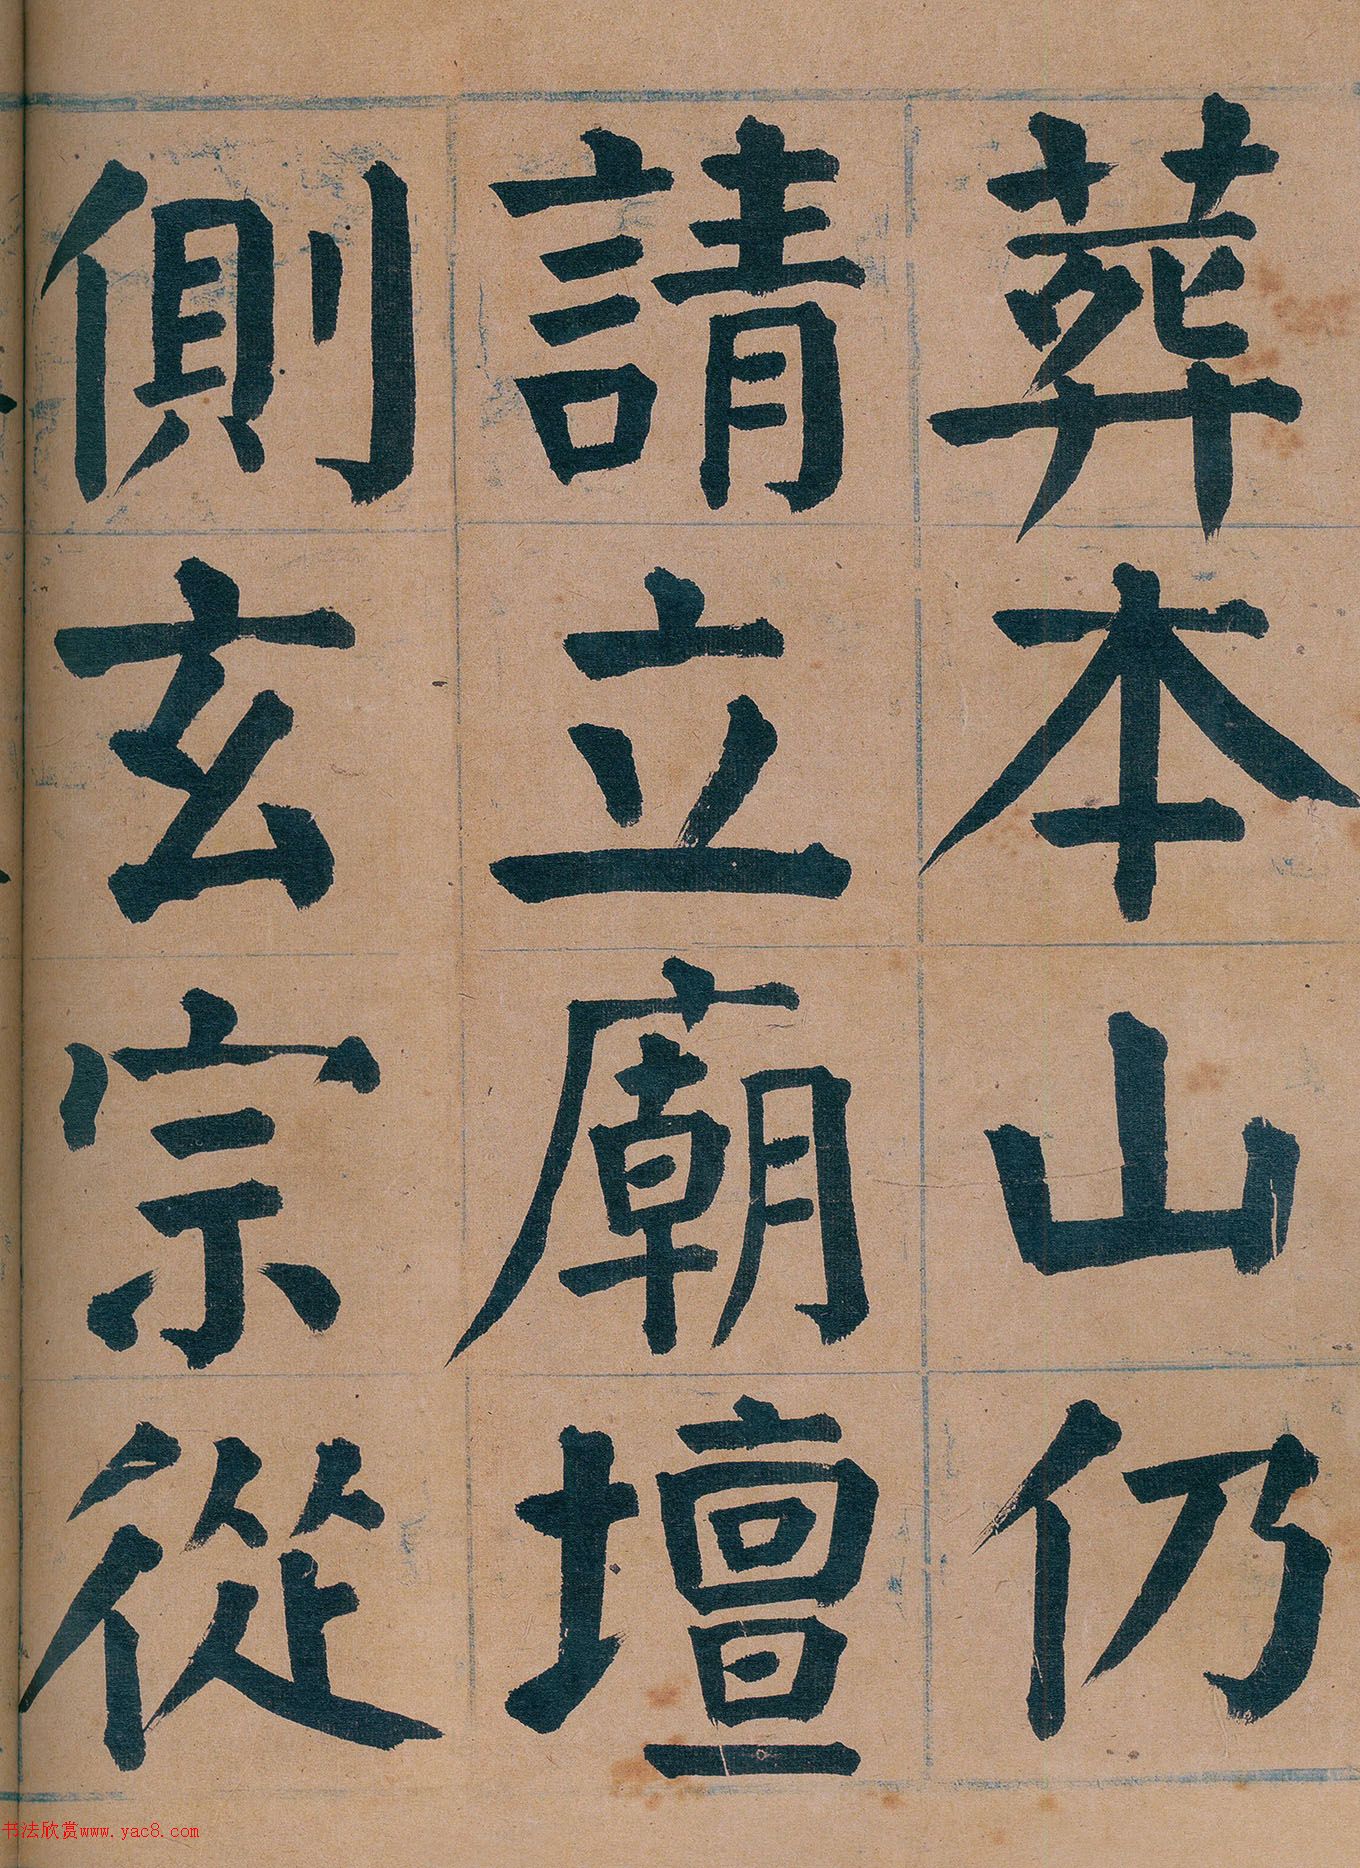 葬本山仍
請立廟壇
側玄宗從
书法欣赏www.yac8.com